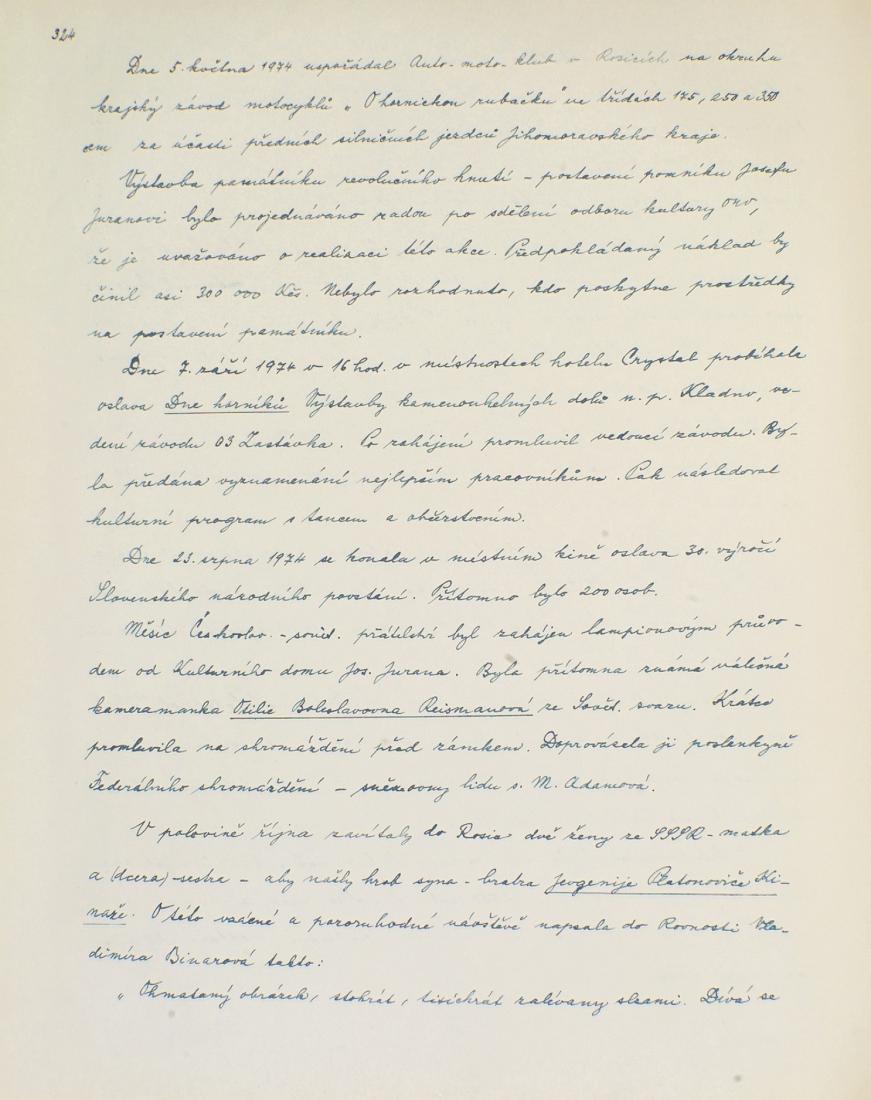 324
Dne 5. května 1974 uspořádal Auto-moto-klub v Rosicích na okruhu
krajský závod motocyklů „O hornickou rubačku" ve třídách 175, 250 a 350
ccm za účasti předních silničních jezdců Jihomoravského kraje.
Výstavba památníku revolučního hnutí – postavení pomníku Josefu
Juranovi bylo projednáváno radou po sdělení odboru kultury ONV,
že je uvažováno o realisaci této akce. Předpokládaný náklad by
činil asi 300 000 Kčs. Nebylo rozhodnuto, kdo poskytne prostředky
na postavení památníku.
Dne 7. září 1974 v 16 hod. v místnostech hotelu Crystal probíhala
oslava Dne horníků Výstavby kamenouhelných dolů n. p. Kladno, ve-
dení závodu 03 Zastávka. Po zahájení promluvil vedoucí závodu. By-
la předána vyznamenání nejlepším pracovníkům. Pak následoval
kulturní program s tancem a občerstvením.
Dne 23. srpna 1974 se konala v místním kině oslava 30. výročí
Slovenského národního povstání. Přítomno bylo 200 osob.
Měsíc Českoslov. - sovět. přátelství byl zahájen lampionovým průvo-
dem od Kulturního domu Jos. Jurana. Byla přítomna známá válečná
kameramanka Otilie Boleslavovna Reismanová ze Sovět. svazu. Krátce
promluvila na shromáždění před zámkem. Doprovázela ji poslankyně
Federálního shromáždění – sněmovny lidu s. M. Adamová.
V polovině října zavítaly do Rosic dvě ženy ze SSSR – matka
a (dcera) sestra – aby našly hrob syna - bratra Jevgenije Platonoviče Ki-
naže. O této vzácné a pozoruhodné návštěvě napsala do Rovnosti Vla-
dimíra Binarová takto:
„Ohmataný obrázek, stokrát, tisíckrát zalívaný slzami. Dívá se